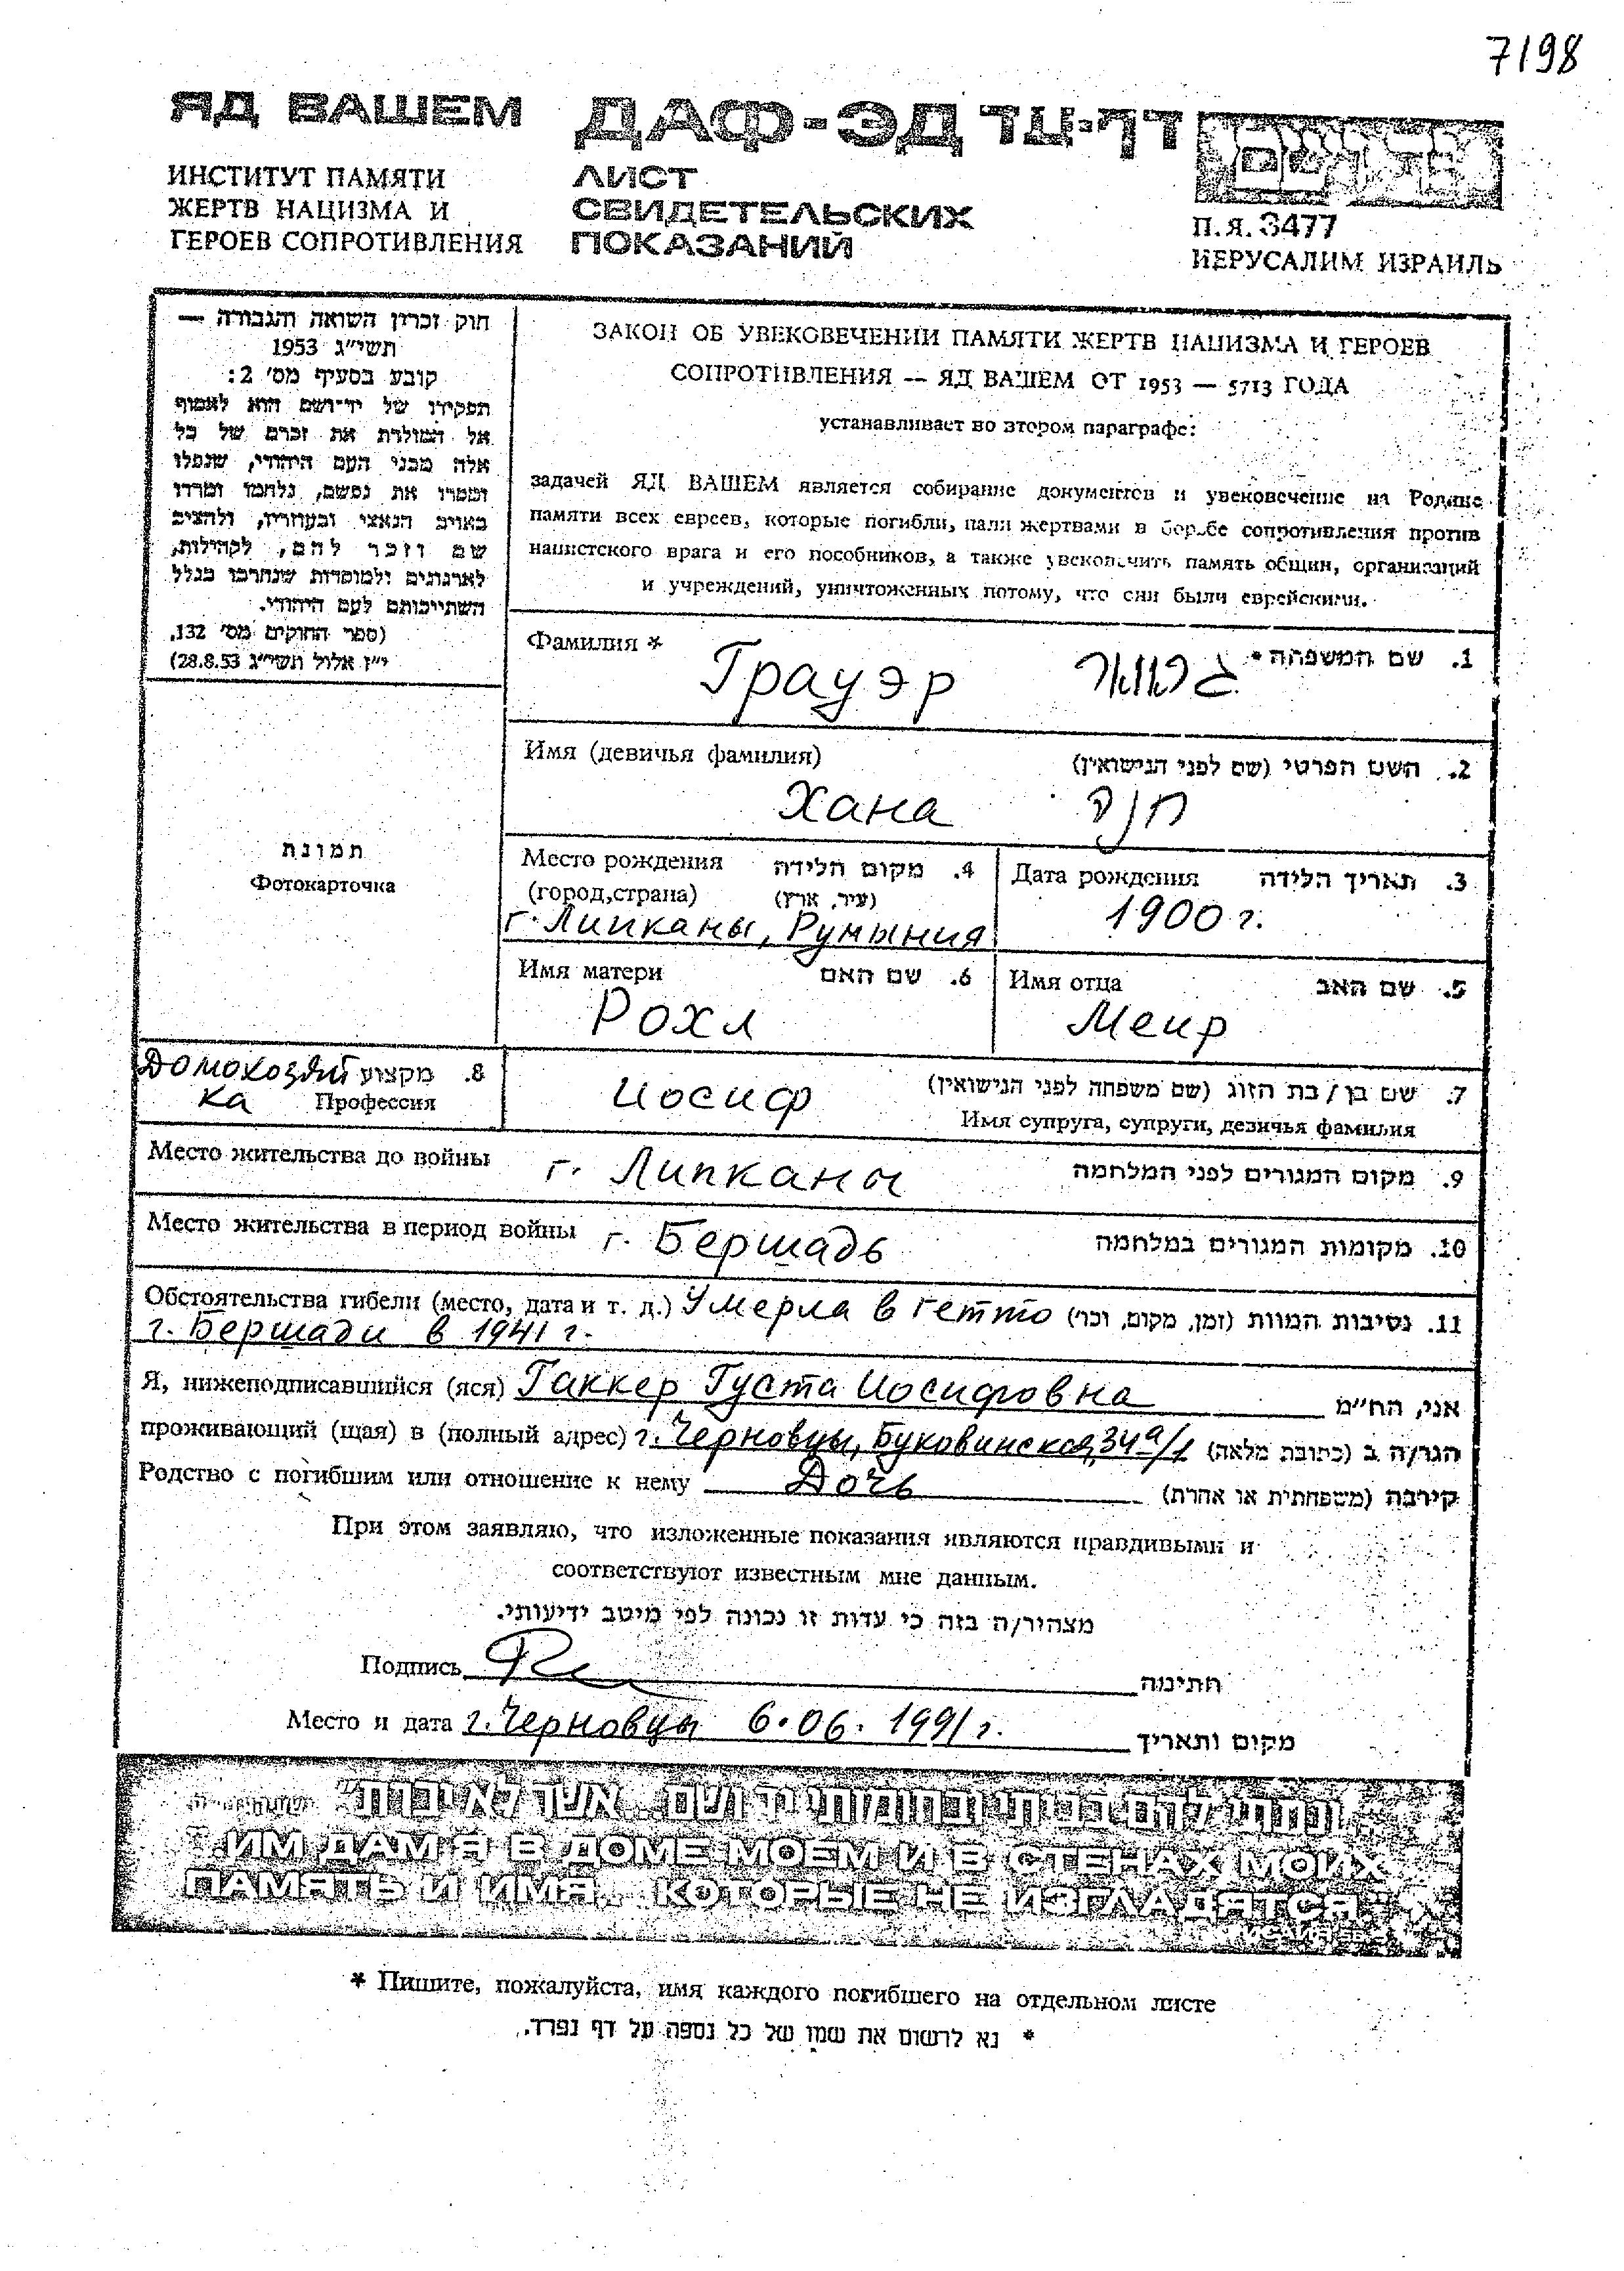 7198
ЯД ВАШЕМ
ДАФ-ЭД דף-עד
ИНСТИТУТ ПАМЯТИ
ЖЕРТВ НАЦИЗМА И
ГЕРОЕВ СОПРОТИВЛЕНИЯ
ЛИСТ
СВИДЕТЕЛЬСКИХ
ПОКАЗАНИЙ
П.Я. 3477
ИЕРУСАЛИМ ИЗРАИЛЬ
חוק זכרון השואה והגבורה —
תשי"ג 1953
קובע בסעיף מס' 2:
תפקידו של יד-ושם הוא לאסוף
אל המולדת את זכרם של כל
אלה מבני העם היהודי, שנפלו
ומסרו את נפשם, נלחמו ומרדו
באויב הנאצי ובעוזריו, ולהציב
שם וזכר להם, לקהילות,
לארגונים ולמוסדות שנחרבו בגלל
השתייכותם לעם היהודי.
(ספר החוקים מס' 132,
י"ז אלול תשי"ג 28.8.53)
ЗАКОН ОБ УВЕКОВЕЧЕНИИ ПАМЯТИ ЖЕРТВ НАЦИЗМА И ГЕРОЕВ
СОПРОТИВЛЕНИЯ — ЯД ВАШЕМ ОТ 1953 — 5713 ГОДА
устанавливает во втором параграфе:
задачей ЯД ВАШЕМ является собирание документов и увековечение на Родине
памяти всех евреев, которые погибли, пали жертвами в борьбе сопротивления против
нацистского врага и его пособников, а также увековечить память общин, организаций
и учреждений, уничтоженных потому, что они были еврейскими.
Фамилия * 1. שם המשפחה*
Грауэр גראואר
Имя (девичья фамилия) 2. השם הפרטי (שם לפני הנישואין)
Хана חנה
תמונת
Фотокарточка
Место рождения 4. מקום הלידה
(город,страна) (עיר, ארץ)
г. Липканы, Румыния
Дата рождения 3. תאריך הלידה
1900 г.
Имя матери 6. שם האם
Рохл
Имя отца 5. שם האב
Меир
Домохозяй 8. מקצוע
ка Профессия
Иосиф 7. שם בן / בת הזוג (שם משפחה לפני הנישואין)
Имя супруга, супруги, девичья фамилия
Место жительства до войны г. Липканы 9. מקום המגורים לפני המלחמה
Место жительства в период войны г. Бершадь 10. מקומות המגורים במלחמה
Обстоятельства гибели (место, дата и т. д.) Умерла в гетто 11. נסיבות המוות (זמן, מקום, וכו')
г. Бершади в 1941 г.
Я, нижеподписавшийся (яся) Гаккер Густа Иосифовна אני, הח"מ
проживающий (щая) в (полный адрес) г. Черновцы, Буковинская, 34а/1 הגר/ה ב (כתובת מלאה)
Родство с погибшим или отношение к нему Дочь קירבה (משפחתית או אחרת)
При этом заявляю, что изложенные показания являются правдивыми и
соответствуют известным мне данным.
מצהיר/ה בזה כי עדות זו נכונה לפי מיטב ידיעותי.
Подпись חתימה
Место и дата г. Черновцы 6.06.1991 г. מקום ותאריך
"ונתתי להם בביתי ובחומותי יד ושם... אשר לא יכרת"
"...ИМ ДАМ Я В ДОМЕ МОЕМ И В СТЕНАХ МОИХ
ПАМЯТЬ И ИМЯ... КОТОРЫЕ НЕ ИЗГЛАДЯТСЯ."
* Пишите, пожалуйста, имя каждого погибшего на отдельном листе
* נא לרשום את שמו של כל נספה על דף נפרד.